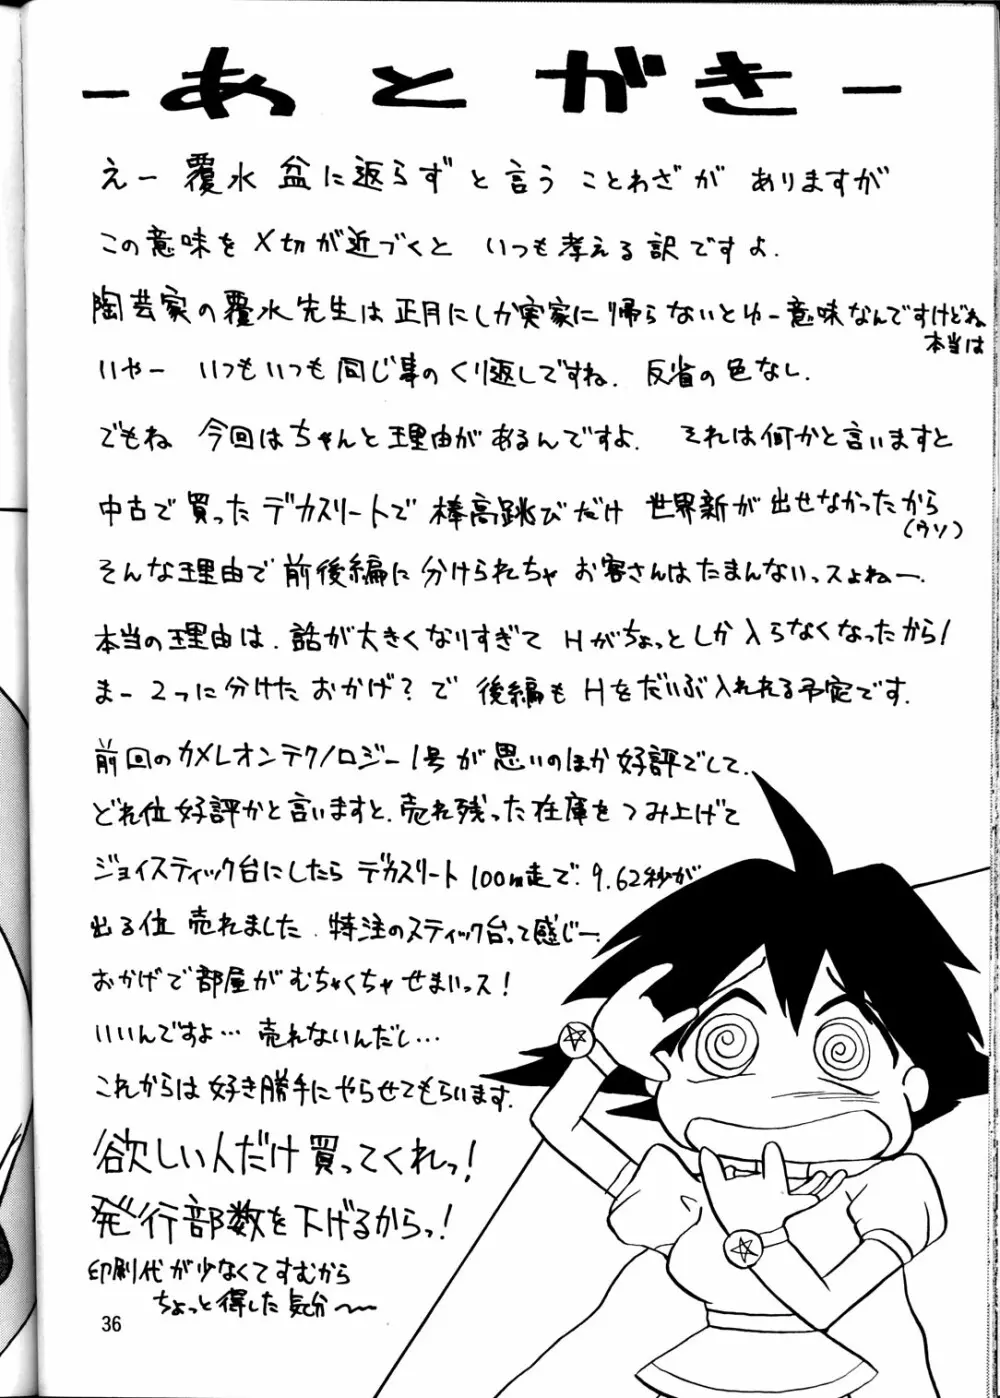 －あとがき－
えー 覆水 盆に返らず と言う ことわざが ありますが
この意味を〆切が近づくと いつも考える訳ですよ.
陶芸家の覆水先生は正月にしか実家に帰らないとゆー意味なんですけどね
本当は
いやー いつもいつも同じ事のくり返しですね. 反省の色なし.
でもね 今回はちゃんと理由があるんですよ. それは何かと言いますと
中古で買ったデカスリートで棒高跳びだけ 世界新が出せなかったから
(ウソ)
そんな理由で前後編に分けられちゃ お客さんはたまんないっスよねー.
本当の理由は. 話が大きくなりすぎて Hがちょっとしか入らなくなったから!
まー2つに分けたおかげ?で 後編もHをだいぶ入れれる予定です.
前回のカメレオンテクノロジー1号が思いのほか好評でして.
どれ位好評かと言いますと. 売れ残った在庫をつみ上げて
ジョイスティック台にしたら デカスリート100m走で. 9.62秒が
出る位 売れました. 特注のスティック台って感じー.
おかげで部屋がむちゃくちゃせまいっス!
いいんですよ… 売れないんだし…
これからは好き勝手にやらせてもらいます.
欲しい人だけ買ってくれっ!
発行部数を下げるからっ!
印刷代が少なくてすむから
ちょっと得した気分〜〜
36